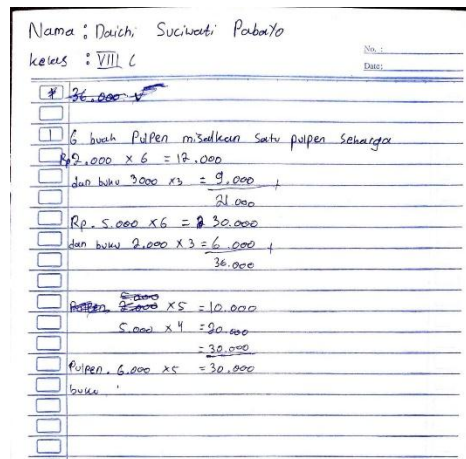 Nama : Daichi Suciwati Pabayo
kelas : VIII C
No. :
Date:
* 36.000
1 6 buah Pulpen misalkan satu pulpen seharga
Rp 2.000 x 6 = 12.000
dan buku 3000 x 3 = 9.000 +
21.000
Rp. 5.000 x 6 = 30.000
dan buku 2.000 x 3 = 6.000 +
36.000
x 5 = 10.000
5.000 x 4 = 20.000
= 30.000
Pulpen. 6.000 x 5 = 30.000
buku :